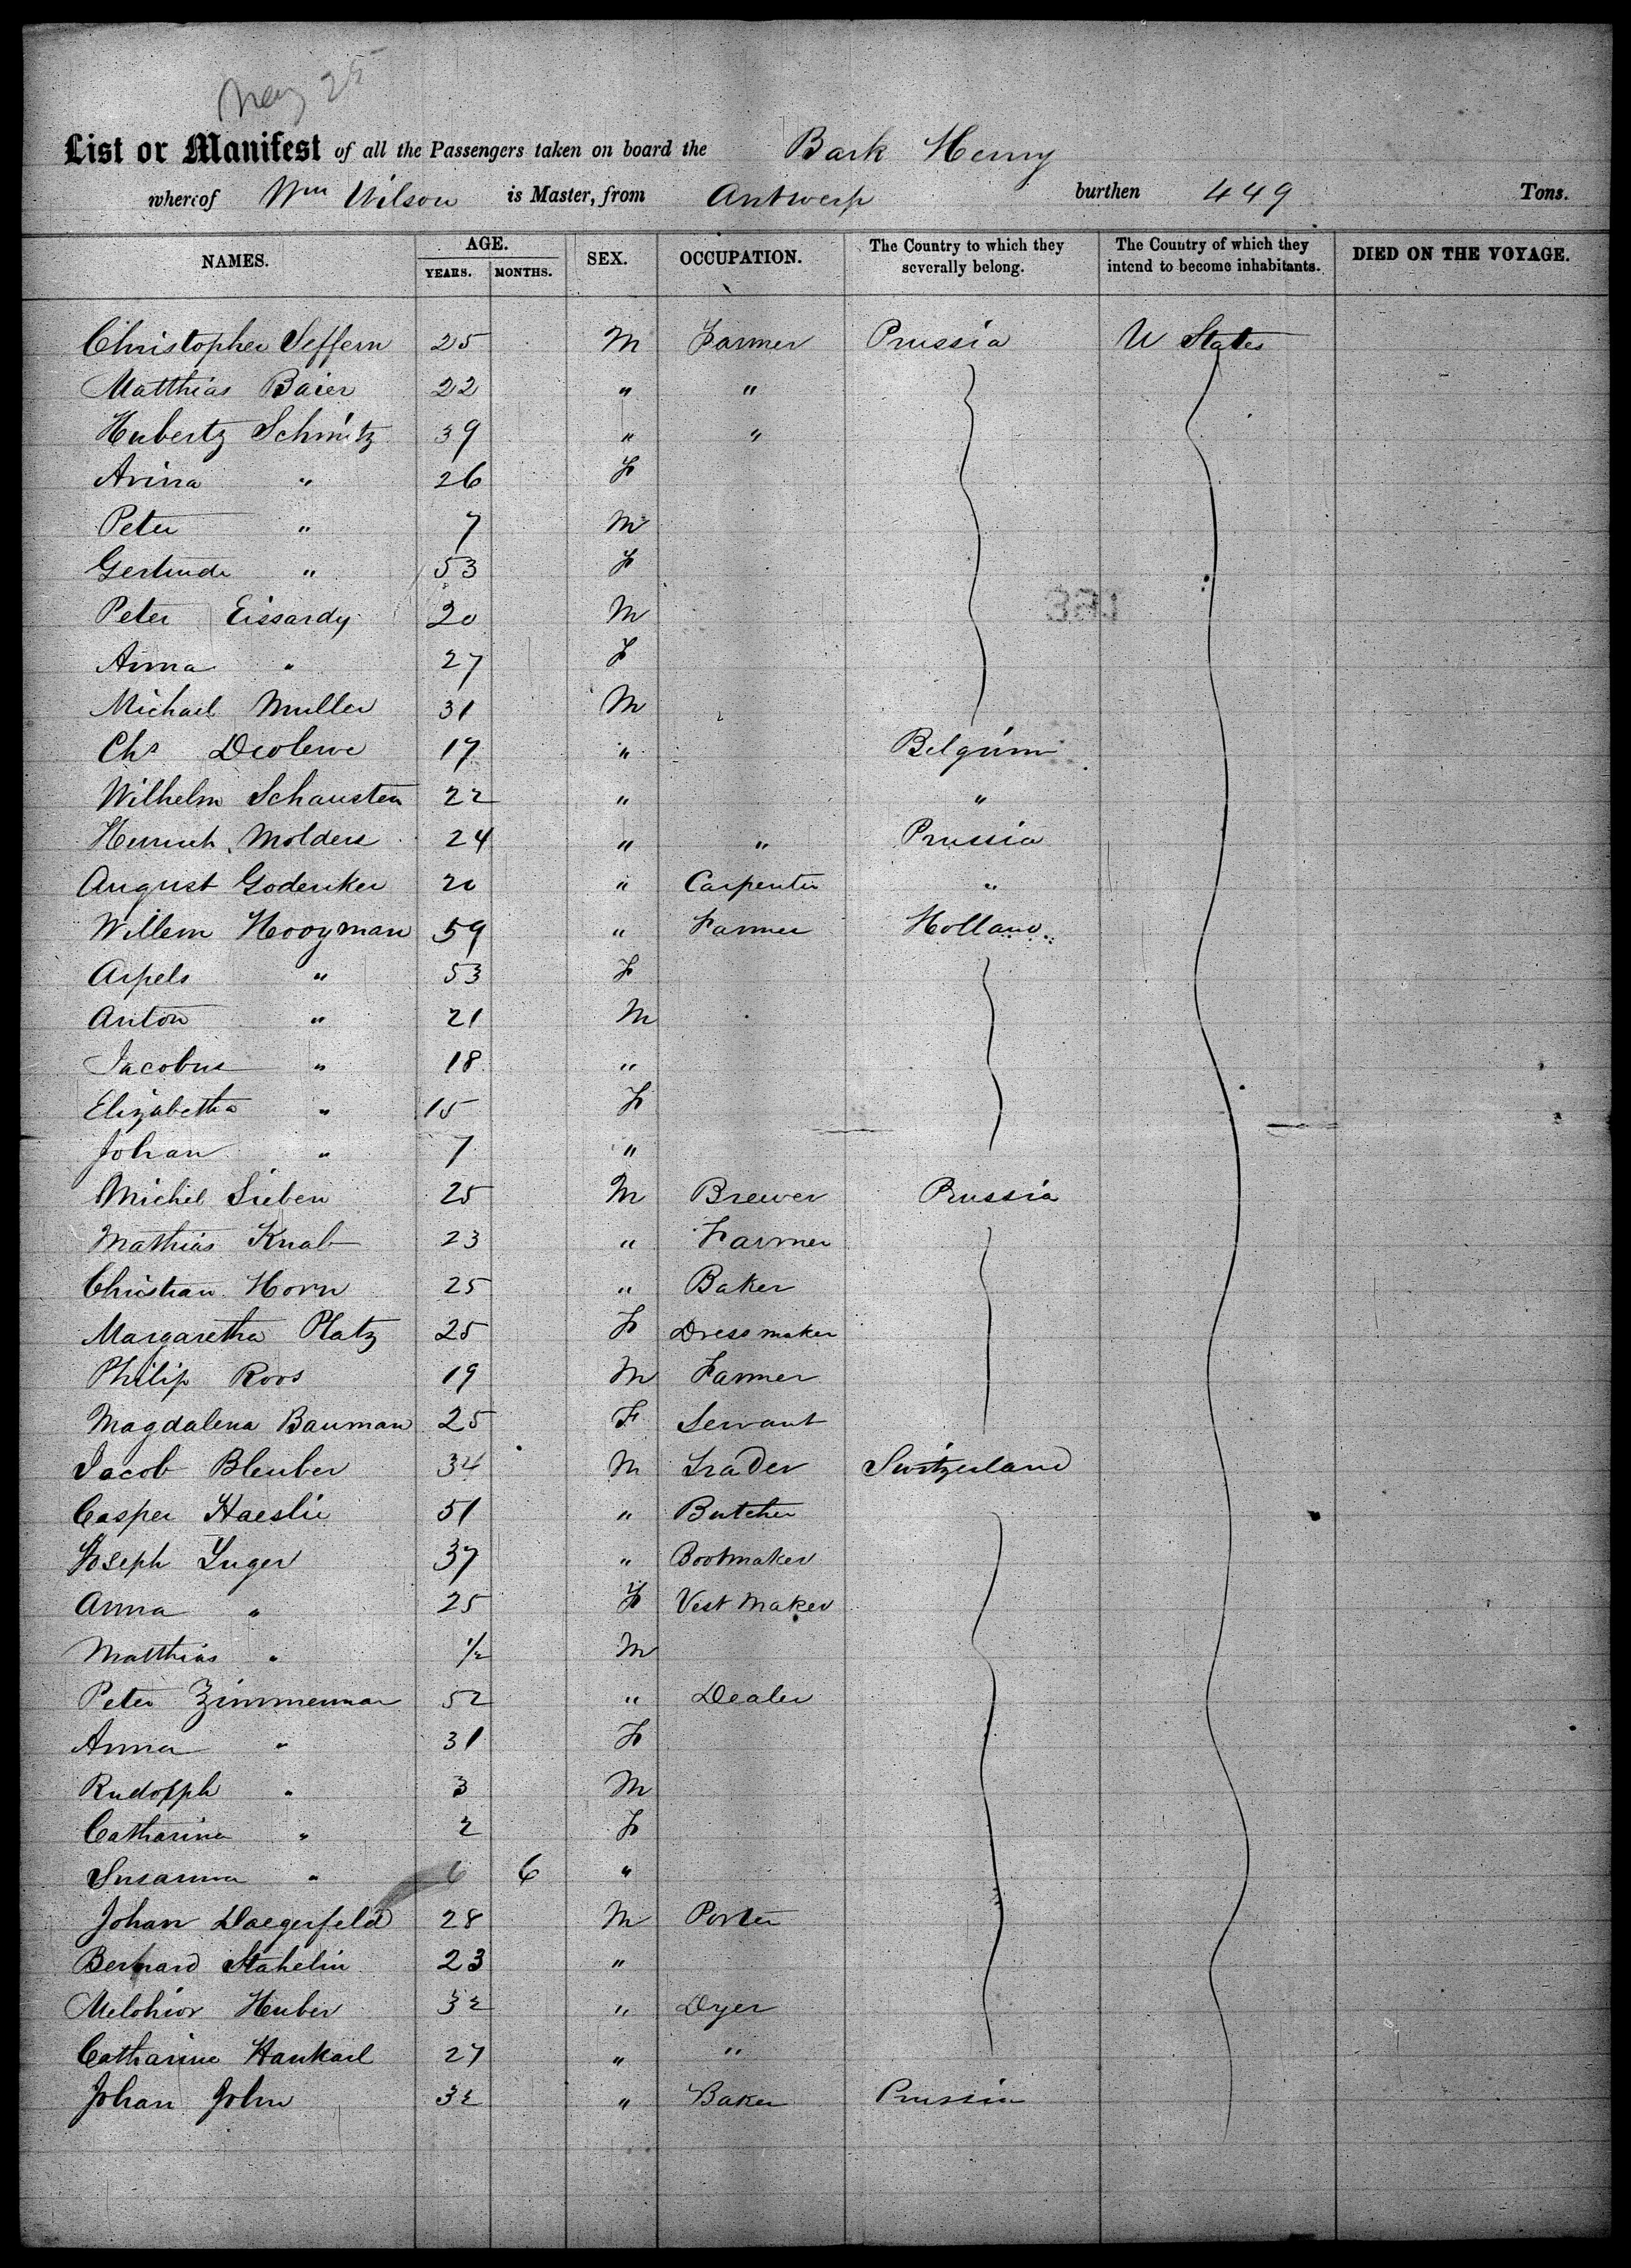 May 25
List or Manifest of all the Passengers taken on board the Bark Henry
whereof Wm Wilson is Master, from Antwerp burthen 449 Tons.
NAMES. AGE. YEARS. MONTHS. SEX. OCCUPATION. The Country to which they severally belong. The Country of which they intend to become inhabitants. DIED ON THE VOYAGE.
Christopher Seffern 25 M Farmer Prussia U States
Matthias Baier 22 " "
Hubertz Schmitz 39 " "
Anna " 26 F
Peter " 7 M
Gertrude " 53 F
Peter Eissardy 20 M
Anna " 27 F
Michael Muller 31 M
Chs 17 " Belgium
Wilhelm Schausten 22 " "
Heinrich Molders 24 " " Prussia
August Godenker 20 " Carpenter "
Willem Hooyman 59 " Farmer Holland
Aspels " 53 F
Anton " 21 M
Jacobus " 18 "
Elizabetha " 15 F
Johan " 7 "
Michel Sieben 25 M Brewer Prussia
Mathias Knab 23 " Farmer
Christian Horn 25 " Baker
Margaretha Platz 25 F Dressmaker
Philip Roos 19 M Farmer
Magdalena Bauman 25 F Servant
Jacob Bleuber 34 M Trader Switzerland
Casper Haeslie 51 " Butcher
Joseph Luger 37 " Bootmaker
Anna " 25 F Vest Maker
Matthias " 1/2 M
Peter Zimmerman 52 " Dealer
Anna " 31 F
Rudolph " 3 M
Catharina " 2 F
Susanna " 6 "
Johan Daegerfeld 28 M Porter
Bernard Stahelin 23 "
Melchior Heuber 32 " Dyer
Catharine Hankart 27 " "
Johan John 32 " Baker Prussia